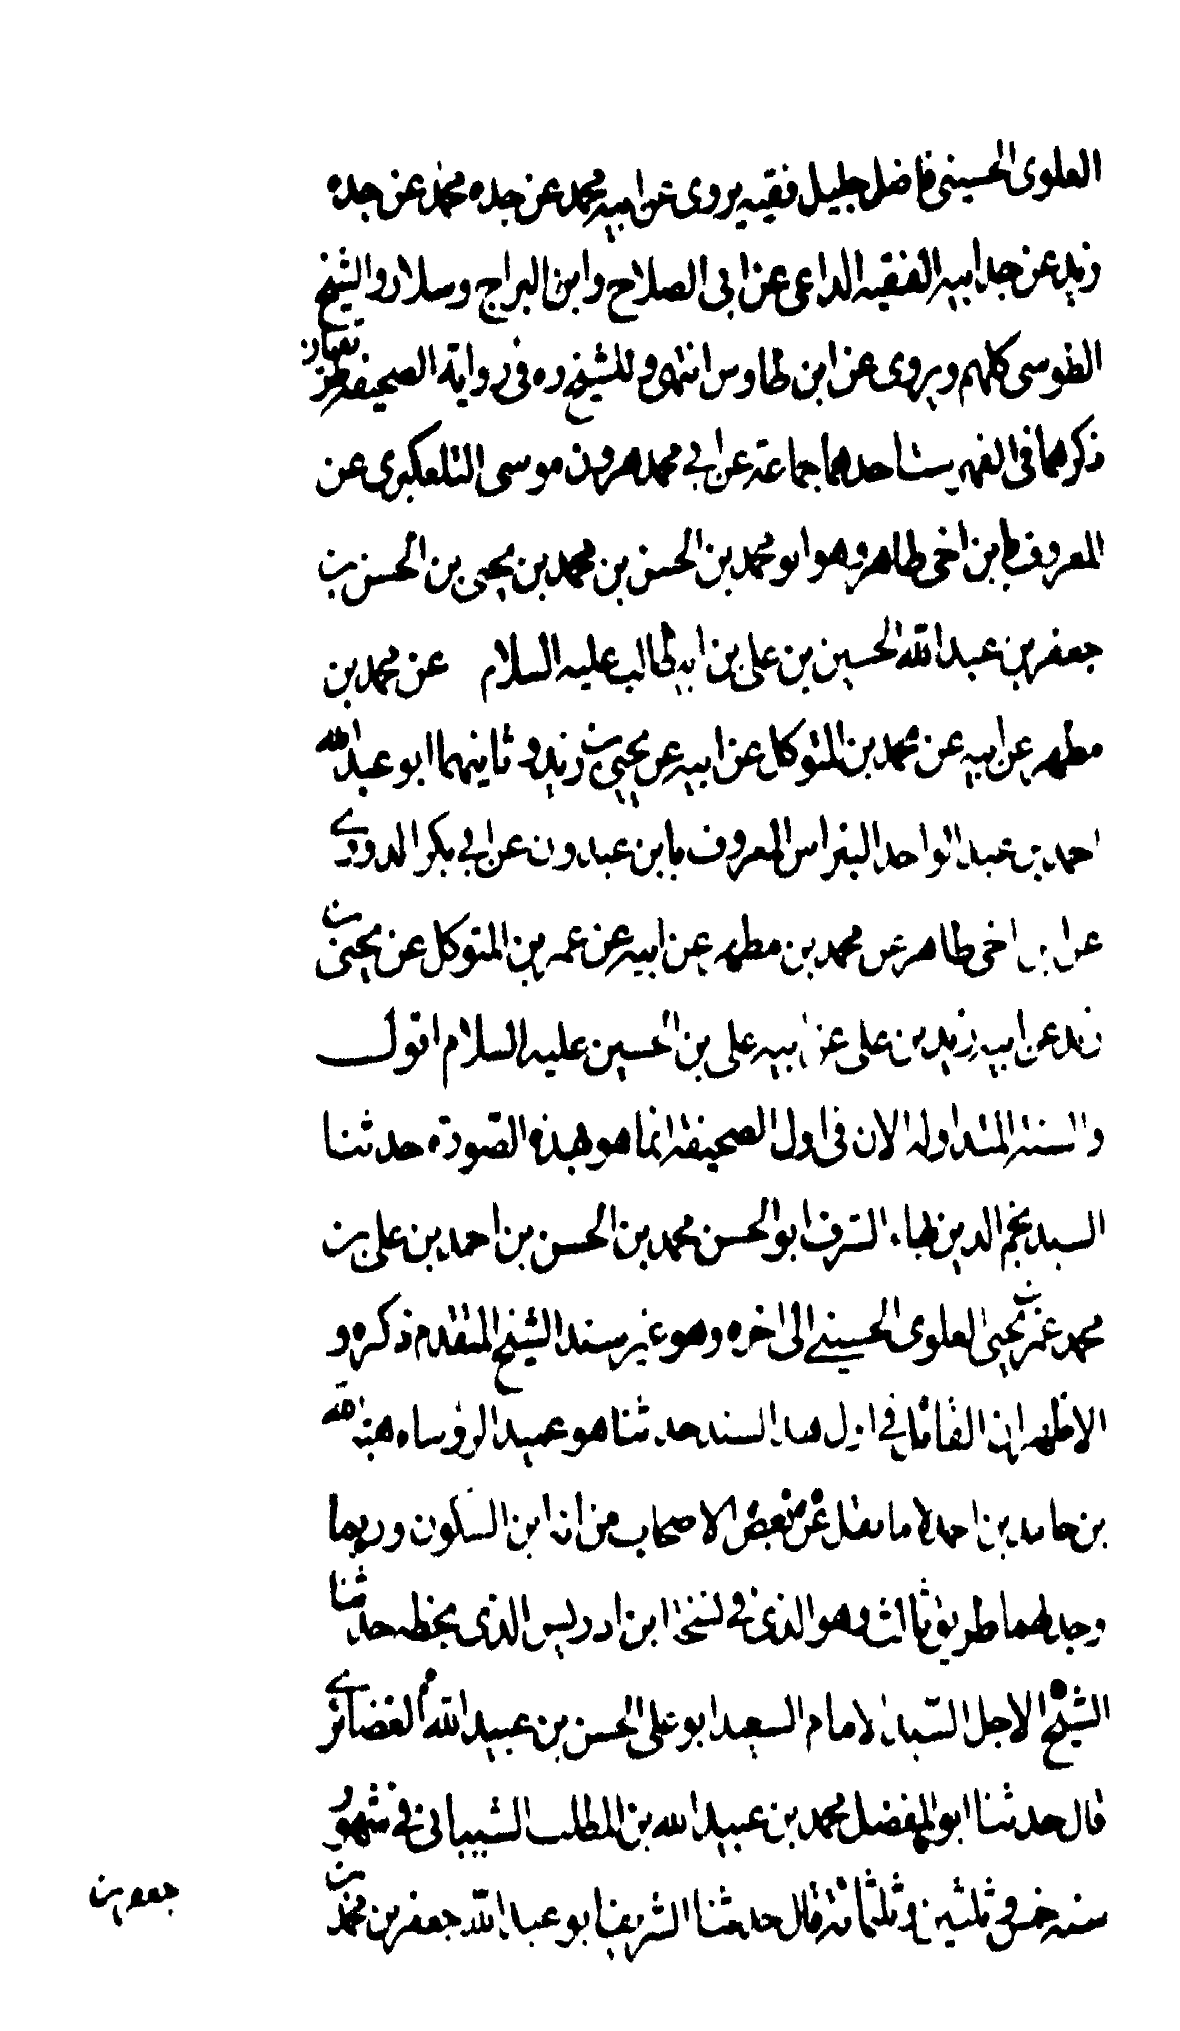 العلوى الحسينى فاضل جليل فقيه يروى عن ابيه محمد عن جده محمد عن جده
زيد عن جد ابيه الفقيه الداعى عن ابى الصلاح وابن البراج وسلار والشيخ
الطوسى كلهم ويروى عن ابن طاوس انتهى وللشيخ ره فى رواية الصحيفة طريقان
ذكرهما فى الفهرست احدهما جماعة عن ابي محمد هرون موسى التلعكبرى عن
المعروف بابن اخى طاهر وهو ابو محمد بن الحسن بن محمد بن يحيى بن الحسن بن
جعفر بن عبد الله الحسين بن على بن ابي طالب عليه السلام عن محمد بن
مطهر عن ابيه عن محمد بن المتوكل عن ابيه عن يحيى بن زيد و ثانيهما ابو عبد الله
احمد بن عبد الواحد البزاس المعروف بابن عبدون عن ابي بكر الدوري
عن ابن اخى طاهر عن محمد بن مطهر عن ابيه عن عمر بن المتوكل عن يحيى بن
زيد عن ابيه زيد بن على عن ابيه على بن الحسين عليه السلام اقول
والسنة المتداوله الان فى اول الصحيفة انما هو هذه الصورة حدثنا
السيد نجم الدين بهاء الشرف ابو الحسن محمد بن الحسن بن احمد بن على بن
محمد عمر بن يحيى العلوى الحسيني الى اخره وهو غير سند الشيخ المتقدم ذكره و
الاظهر ان القائل في اول هذا السند حدثنا هو عميد الرؤساء هبة الله
بن حامد بن احمد لا ما نقل عن بعض الاصحاب من انه ابن السكون وربما
وجد لهما طريق ثالث وهو الذى في نسخة ابن ادريس الذى بخطه حدثنا
الشيخ الاجل السيد الامام السعيد ابو على الحسن بن عبيد الله الغضائرى
قال حدثنا ابو المفضل محمد بن عبيد الله بن المطلب الشيبانى في شهور
سنه خمس و ثلثين و ثلثمائة قال حدثنا الشريف ابو عبد الله جعفر بن محمد بن
جعفر بن